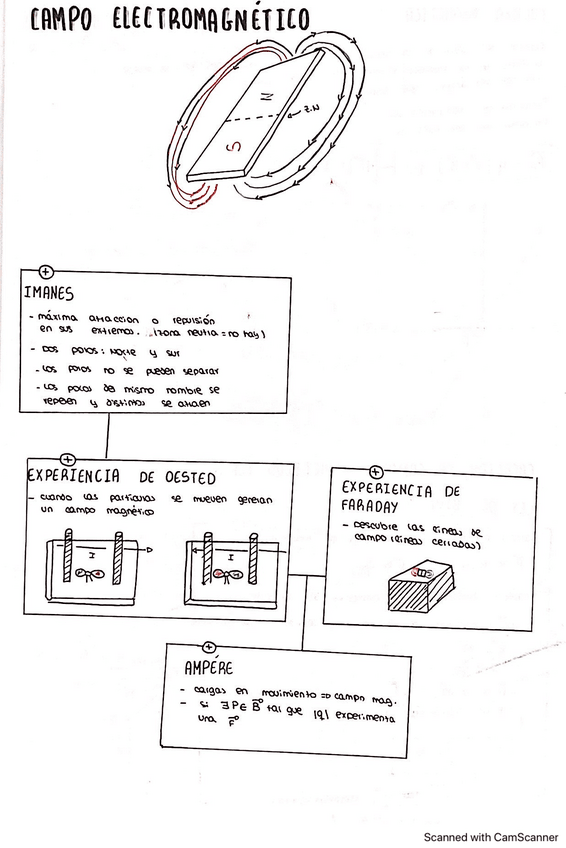 CAMPO ELECTROMAGNÉTICO
N
Z.N
S
IMANES
- máxima atracción o repulsión
en sus extremos. (zona neutra = no hay)
- Dos polos: Norte y sur
- Los polos no se pueden separar
- Los polos del mismo nombre se
repelen y distintos se atraen
EXPERIENCIA DE OESTED
- cuando las partículas se mueven generan
un campo magnético
I
I
EXPERIENCIA DE
FARADAY
- Descubre las líneas de
campo (líneas cerradas)
AMPÉRE
- cargas en movimiento => campo mag.
- si ∃ P ∈ B⃗ tal que |q| experimenta
una F⃗
Scanned with CamScanner